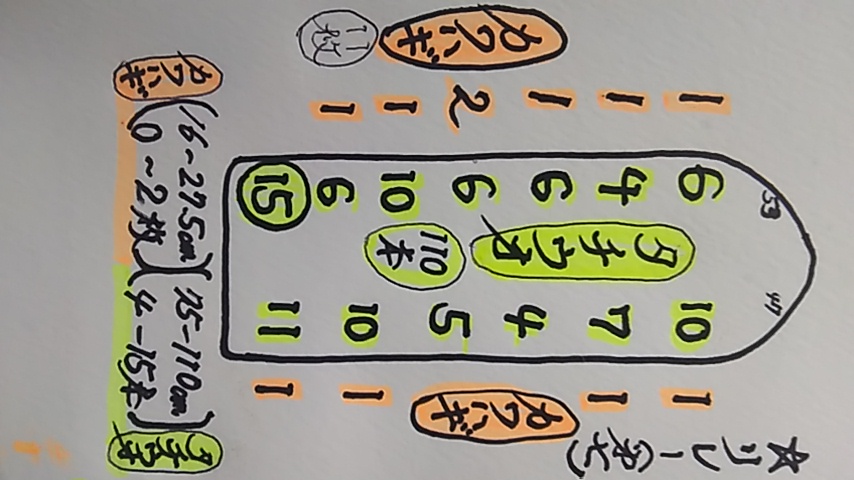 ☆リレー
53 47
1 6 10 1
1 4 7 1
カワハギ 1 6 タチウオ 4 カワハギ
2 6 5
1 10 110本 10 1
11枚 1 6
15 11 1
カワハギ (16~27.5cm) (75-110cm) タチウオ
0~2枚 4-15本